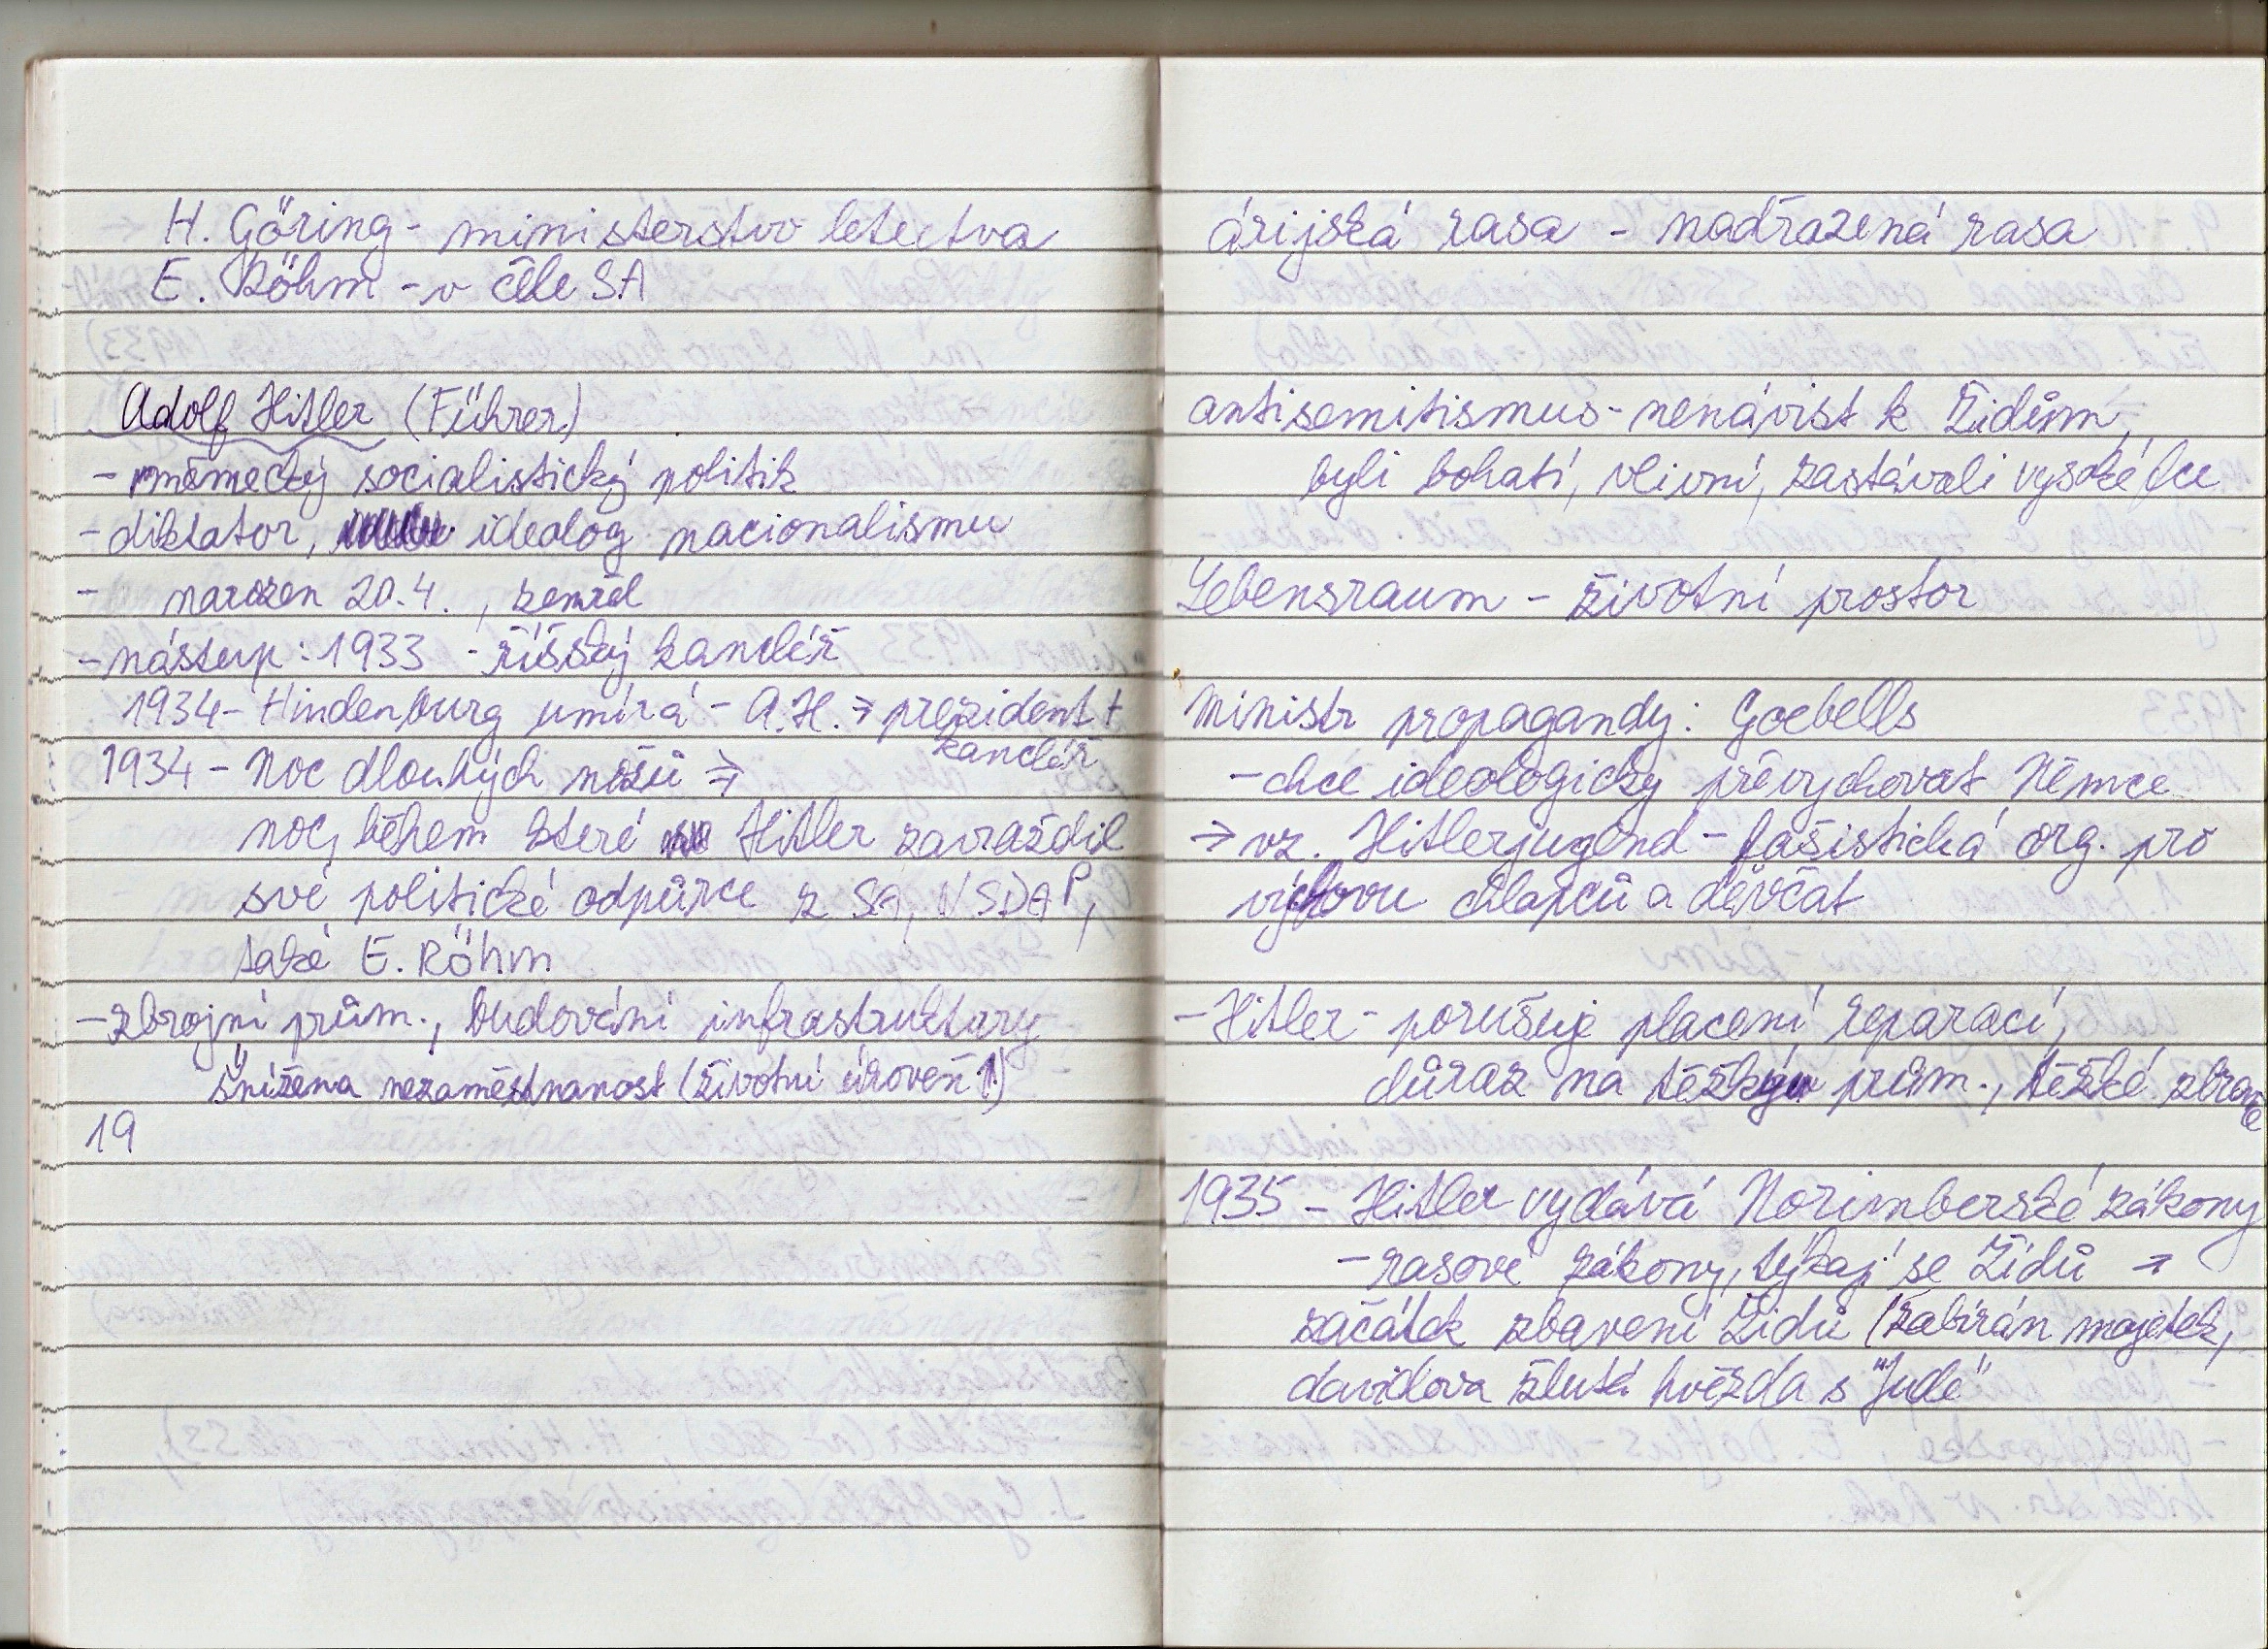 H. Göring - ministerstvo letectva
E. Röhm - v čele SA
Adolf Hitler (Führer)
- německý socialistický politik
- diktator, idealog nacionalismu
- narozen 20.4. , zemřel
- nástup: 1933 - říšský kancléř
1934 - Hindenburg umírá - A.H. → prezident +
kancléř
1934 - Noc dlouhých nožů ⇒
noc, během které Hitler zavraždil
své politické odpůrce z SA, NSDAP,
také E. Röhm
- zbrojní prům., budování infrastruktury
snížena nezaměstnanost (životní úroveň ↑)
19
árijská rasa - nadřazená rasa
antisemitismus - nenávist k Židům,
byli bohatí, vlivní, zastávali vysoké fce
Lebensraum - životní prostor
Ministr propagandy: Goebells
- chce ideologicky převychovat Němce
→ vz. Hitlerjugend - fašistická org. pro
výchovu chlapců a děvčat
- Hitler - porušuje placení reparací,
důraz na těžký prům., těžké zbraně
1935 - Hitler vydává Norimberské zákony
- rasové zákony, týkají se Židů →
začátek zbavení Židů (zabírán majetek,
davidova žlutá hvězda s "Jude"